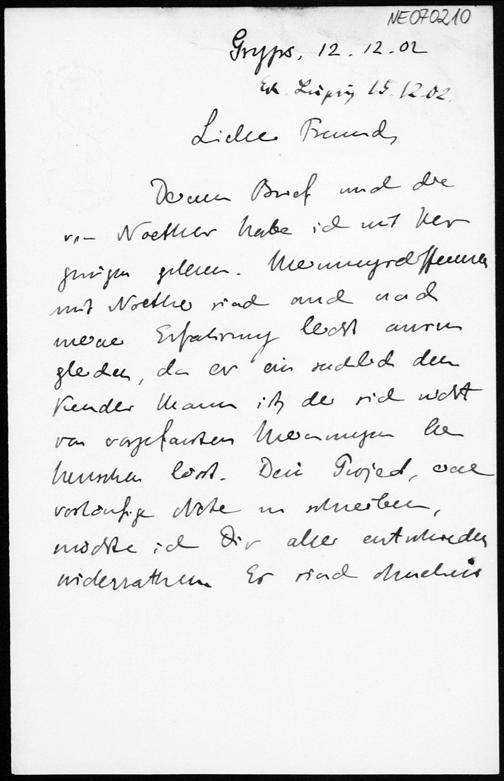 NE070210
Gryps, 12.12.02
Erh. Leipzig 15.12.02.
Lieber Freund,
Deinen Brief und die
von Noether habe ich mit Ver
gnügen gelesen. Meinungsdifferenzen
mit Noether sind auch nach
meiner Erfahrung leicht auszu
gleichen, da er ein sachlich den
kender Mann ist, der sich nicht
von vorgefassten Meinungen be
herrschen lässt. Dein Project, eine
vorläufige Note zu schreiben,
möchte ich Dir aber entschieden
widerrathen. Es sind ohnehin